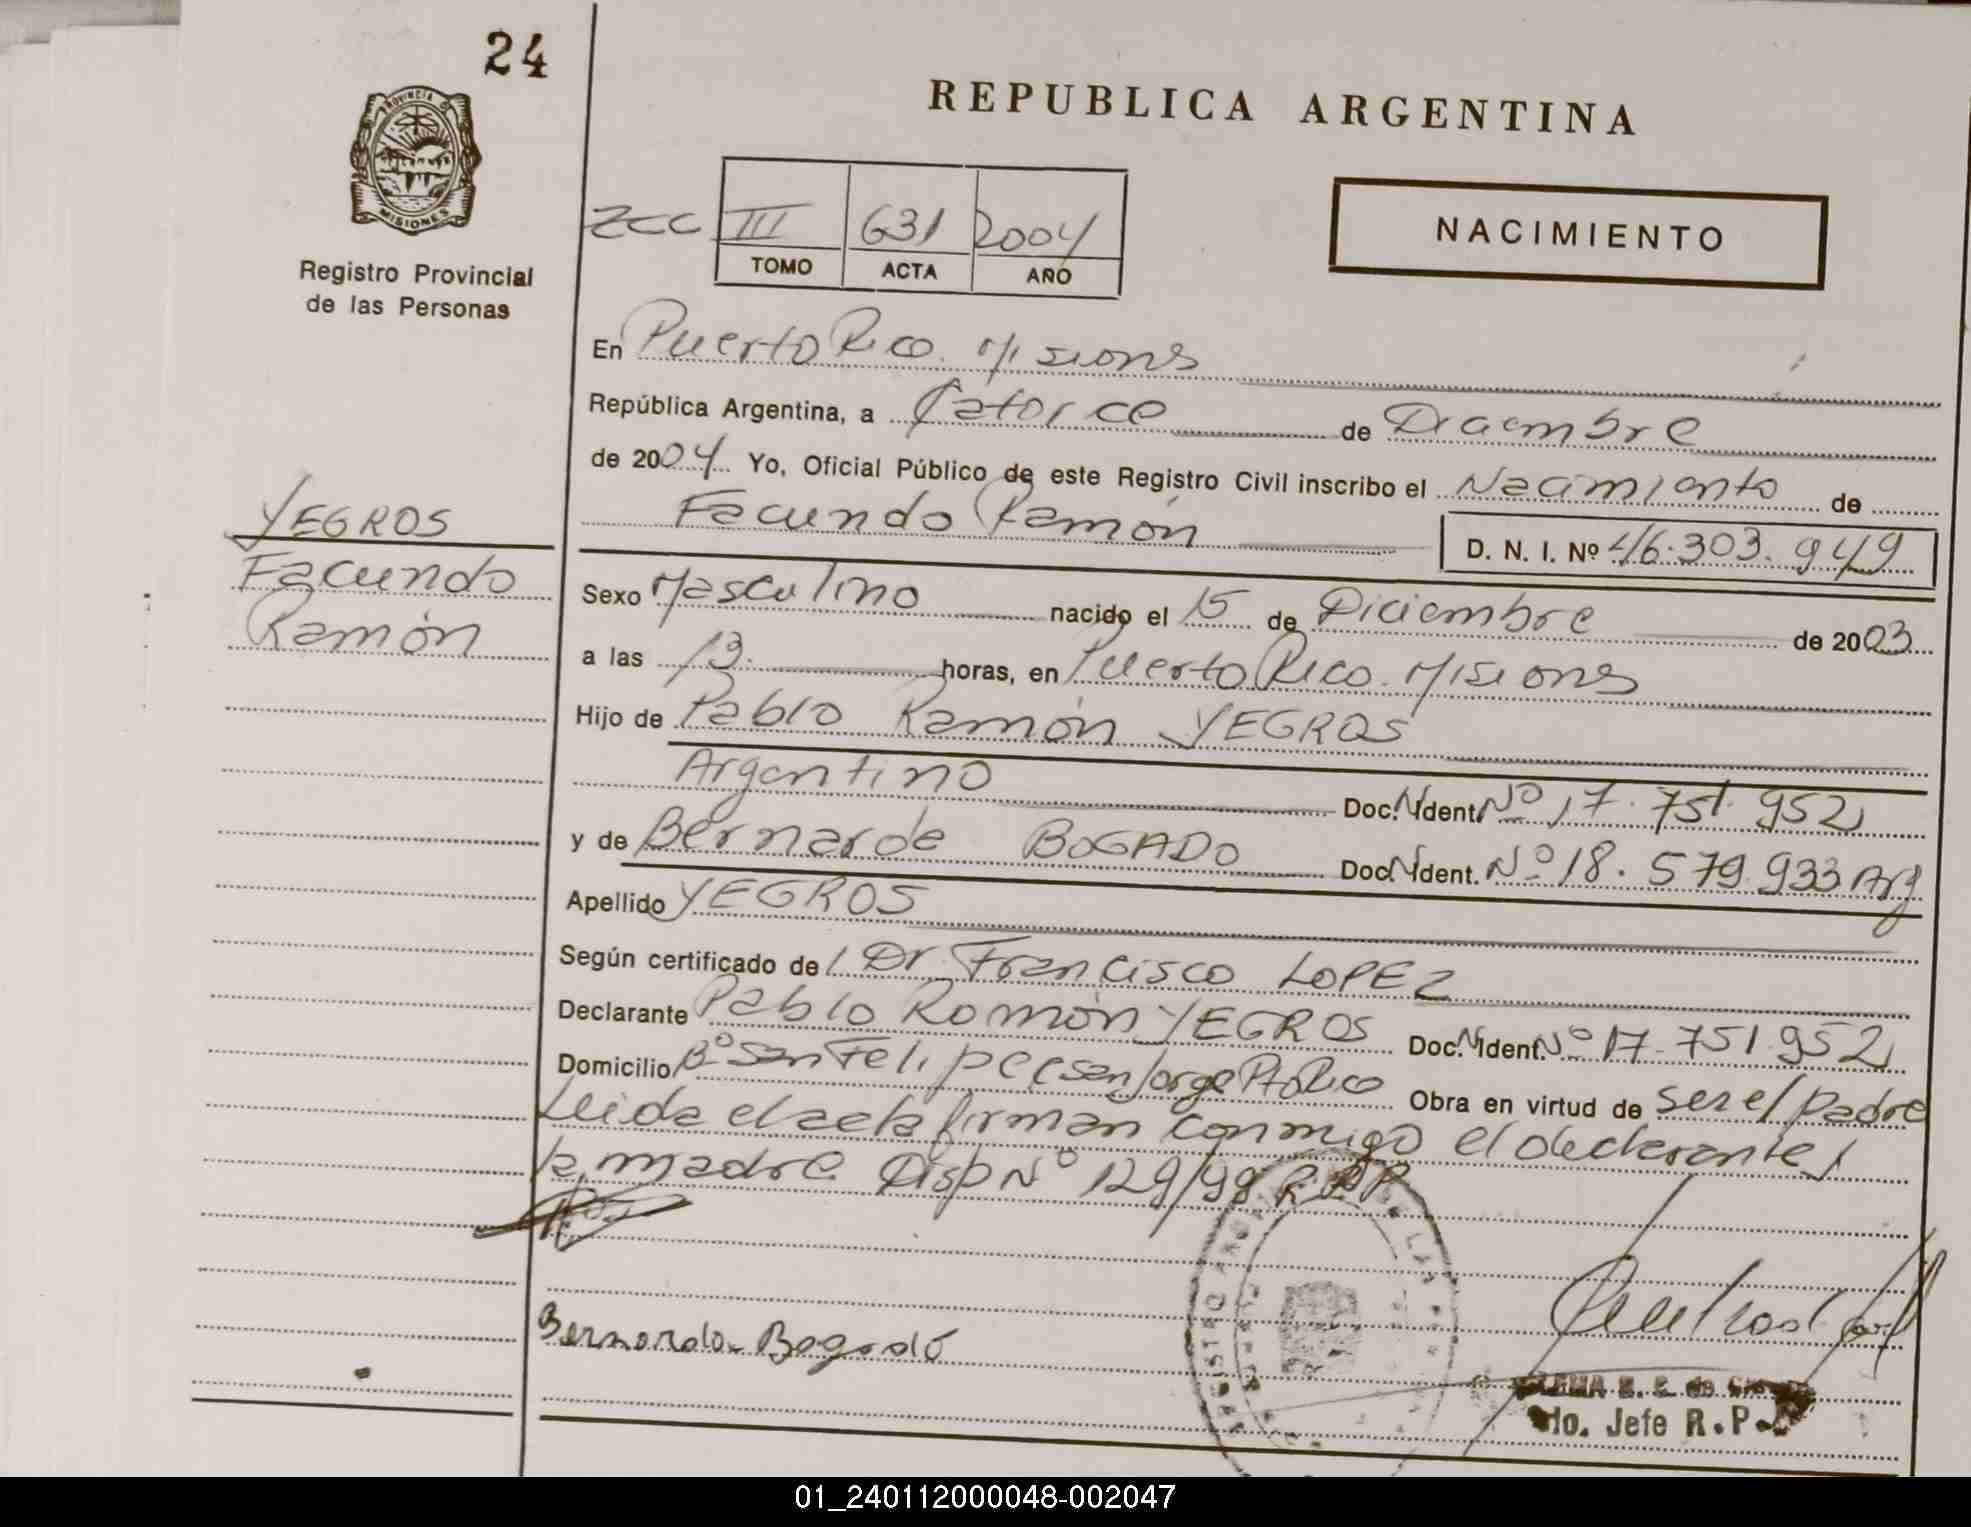 24
REPUBLICA ARGENTINA
PROVINCIA D
MISIONES
Registro Provincial
de las Personas
ZCC III 631 2004
TOMO ACTA AÑO
NACIMIENTO
En Puerto Rico. Misiones
República Argentina, a Catorce de Diciembre
de 2004 Yo, Oficial Público de este Registro Civil inscribo el Nacimiento de
Facundo Ramón
D. N. I. Nº 46.303.949
YEGROS
Facundo
Ramón
Sexo Masculino nacido el 15 de Diciembre de 2003
a las 13. horas, en Puerto Rico. Misiones
Hijo de Pablo Ramón YEGROS
Argentino Doc. Ident. Nº 17.751.952
y de Bernarda BOGADO Doc. Ident. Nº 18.579.933 Arg
Apellido YEGROS
Según certificado del Dr. Francisco LOPEZ
Declarante Pablo Ramón YEGROS Doc. Ident. Nº 17.751.952
Domicilio Bº San Felipe e San Jorge Pto Rico Obra en virtud de ser el padre
Leida el acta firman conmigo el declarante y
la madre Disp Nº 129/99 R.P.P
Bernarda Bogado
Jefe R.P.
01_240112000048-002047